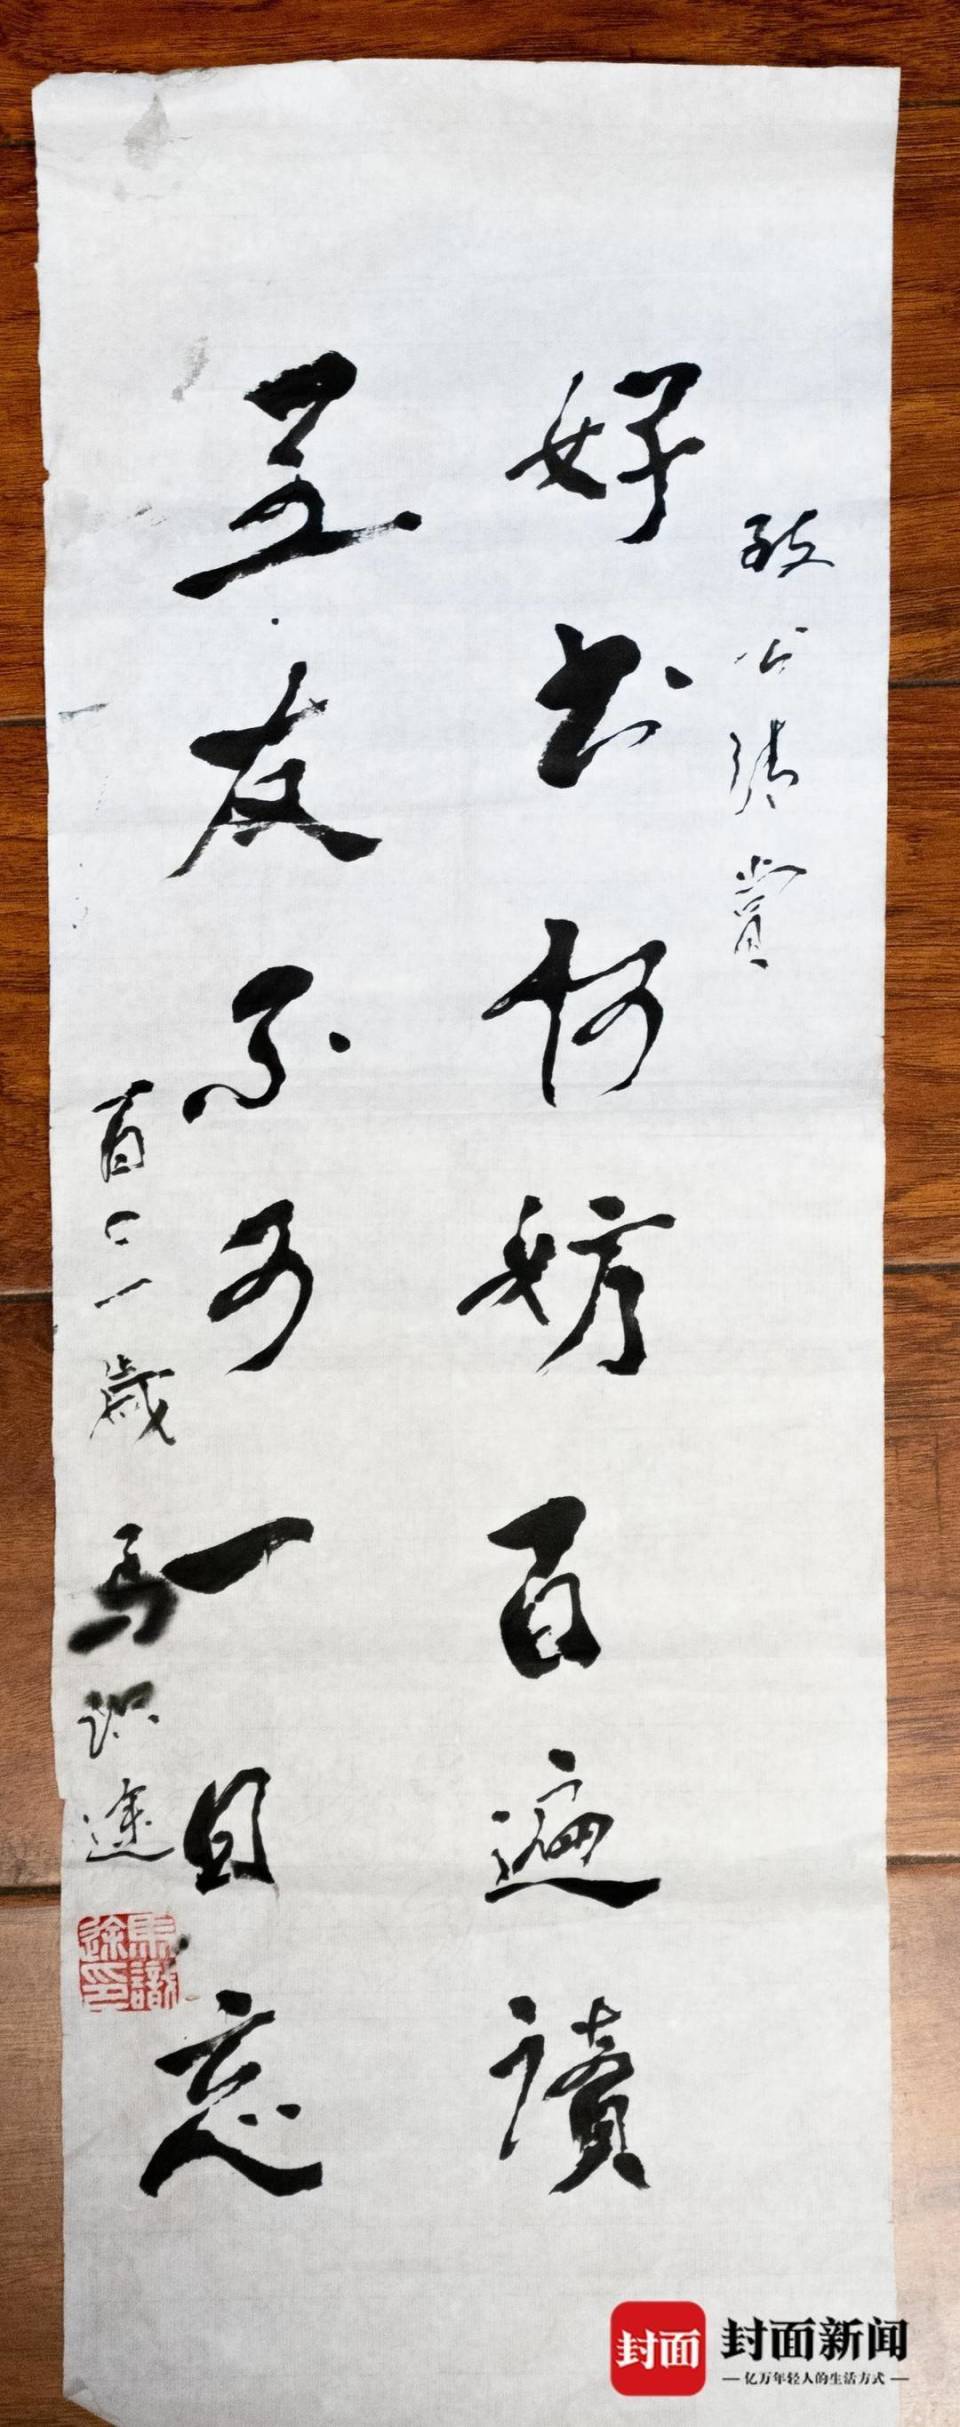 公清賞
好书何妨百遍讀
至友不可一日忘
百〇一歲 馬识途
馬識途印
封面
封面新闻
亿万年轻人的生活方式